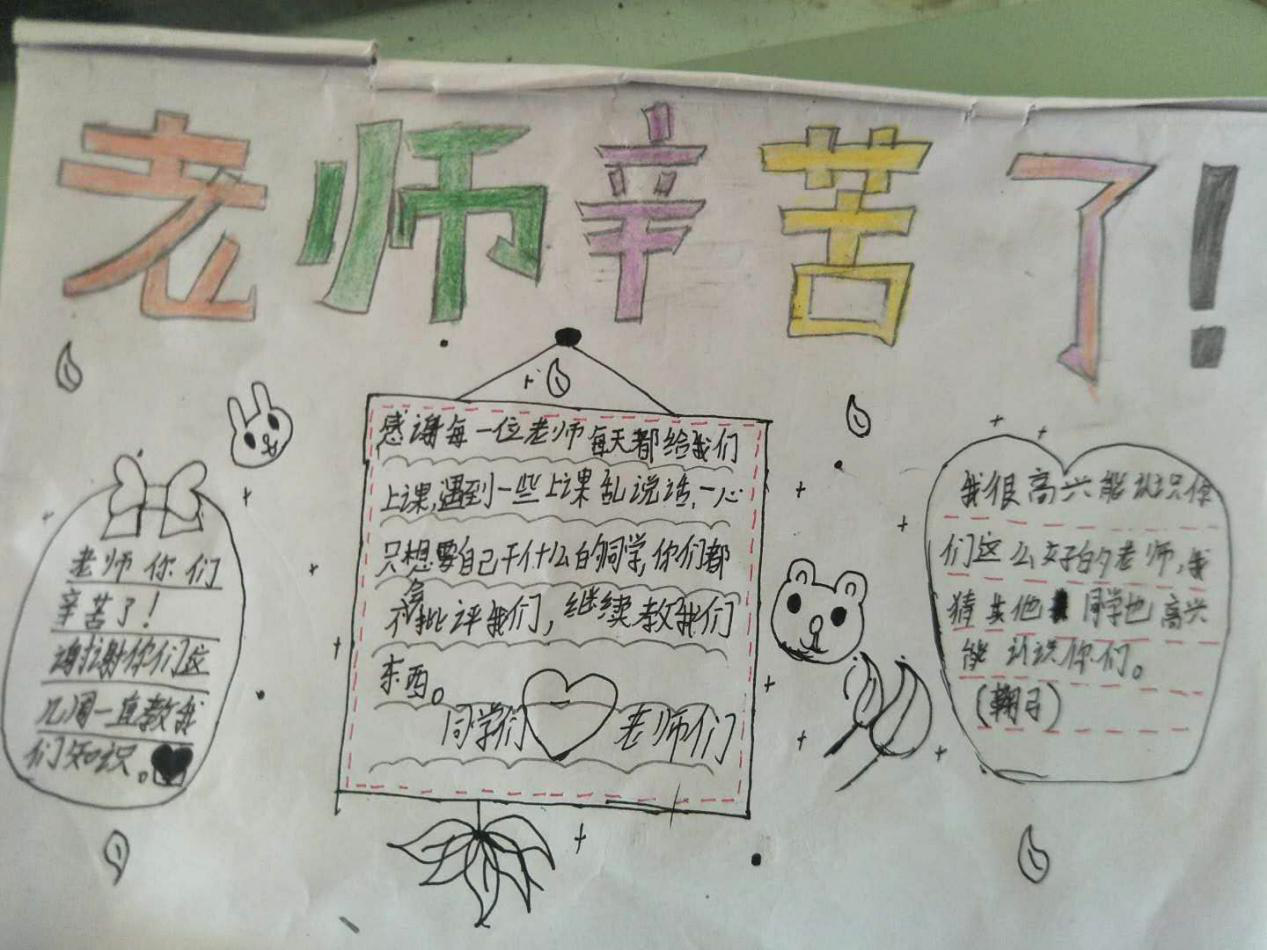 老师辛苦了!
老师你们
辛苦了!
谢谢你们这
几周一直教我
们知识。
感谢每一位老师每天都给我们
上课,遇到一些上课乱说话,一心
只想要自己干什么的同学,你们都
会批评我们,继续教我们
东西。
同学们 老师们
我很高兴能认识你
们这么好的老师,我
猜其他同学也高兴
能认识你们。